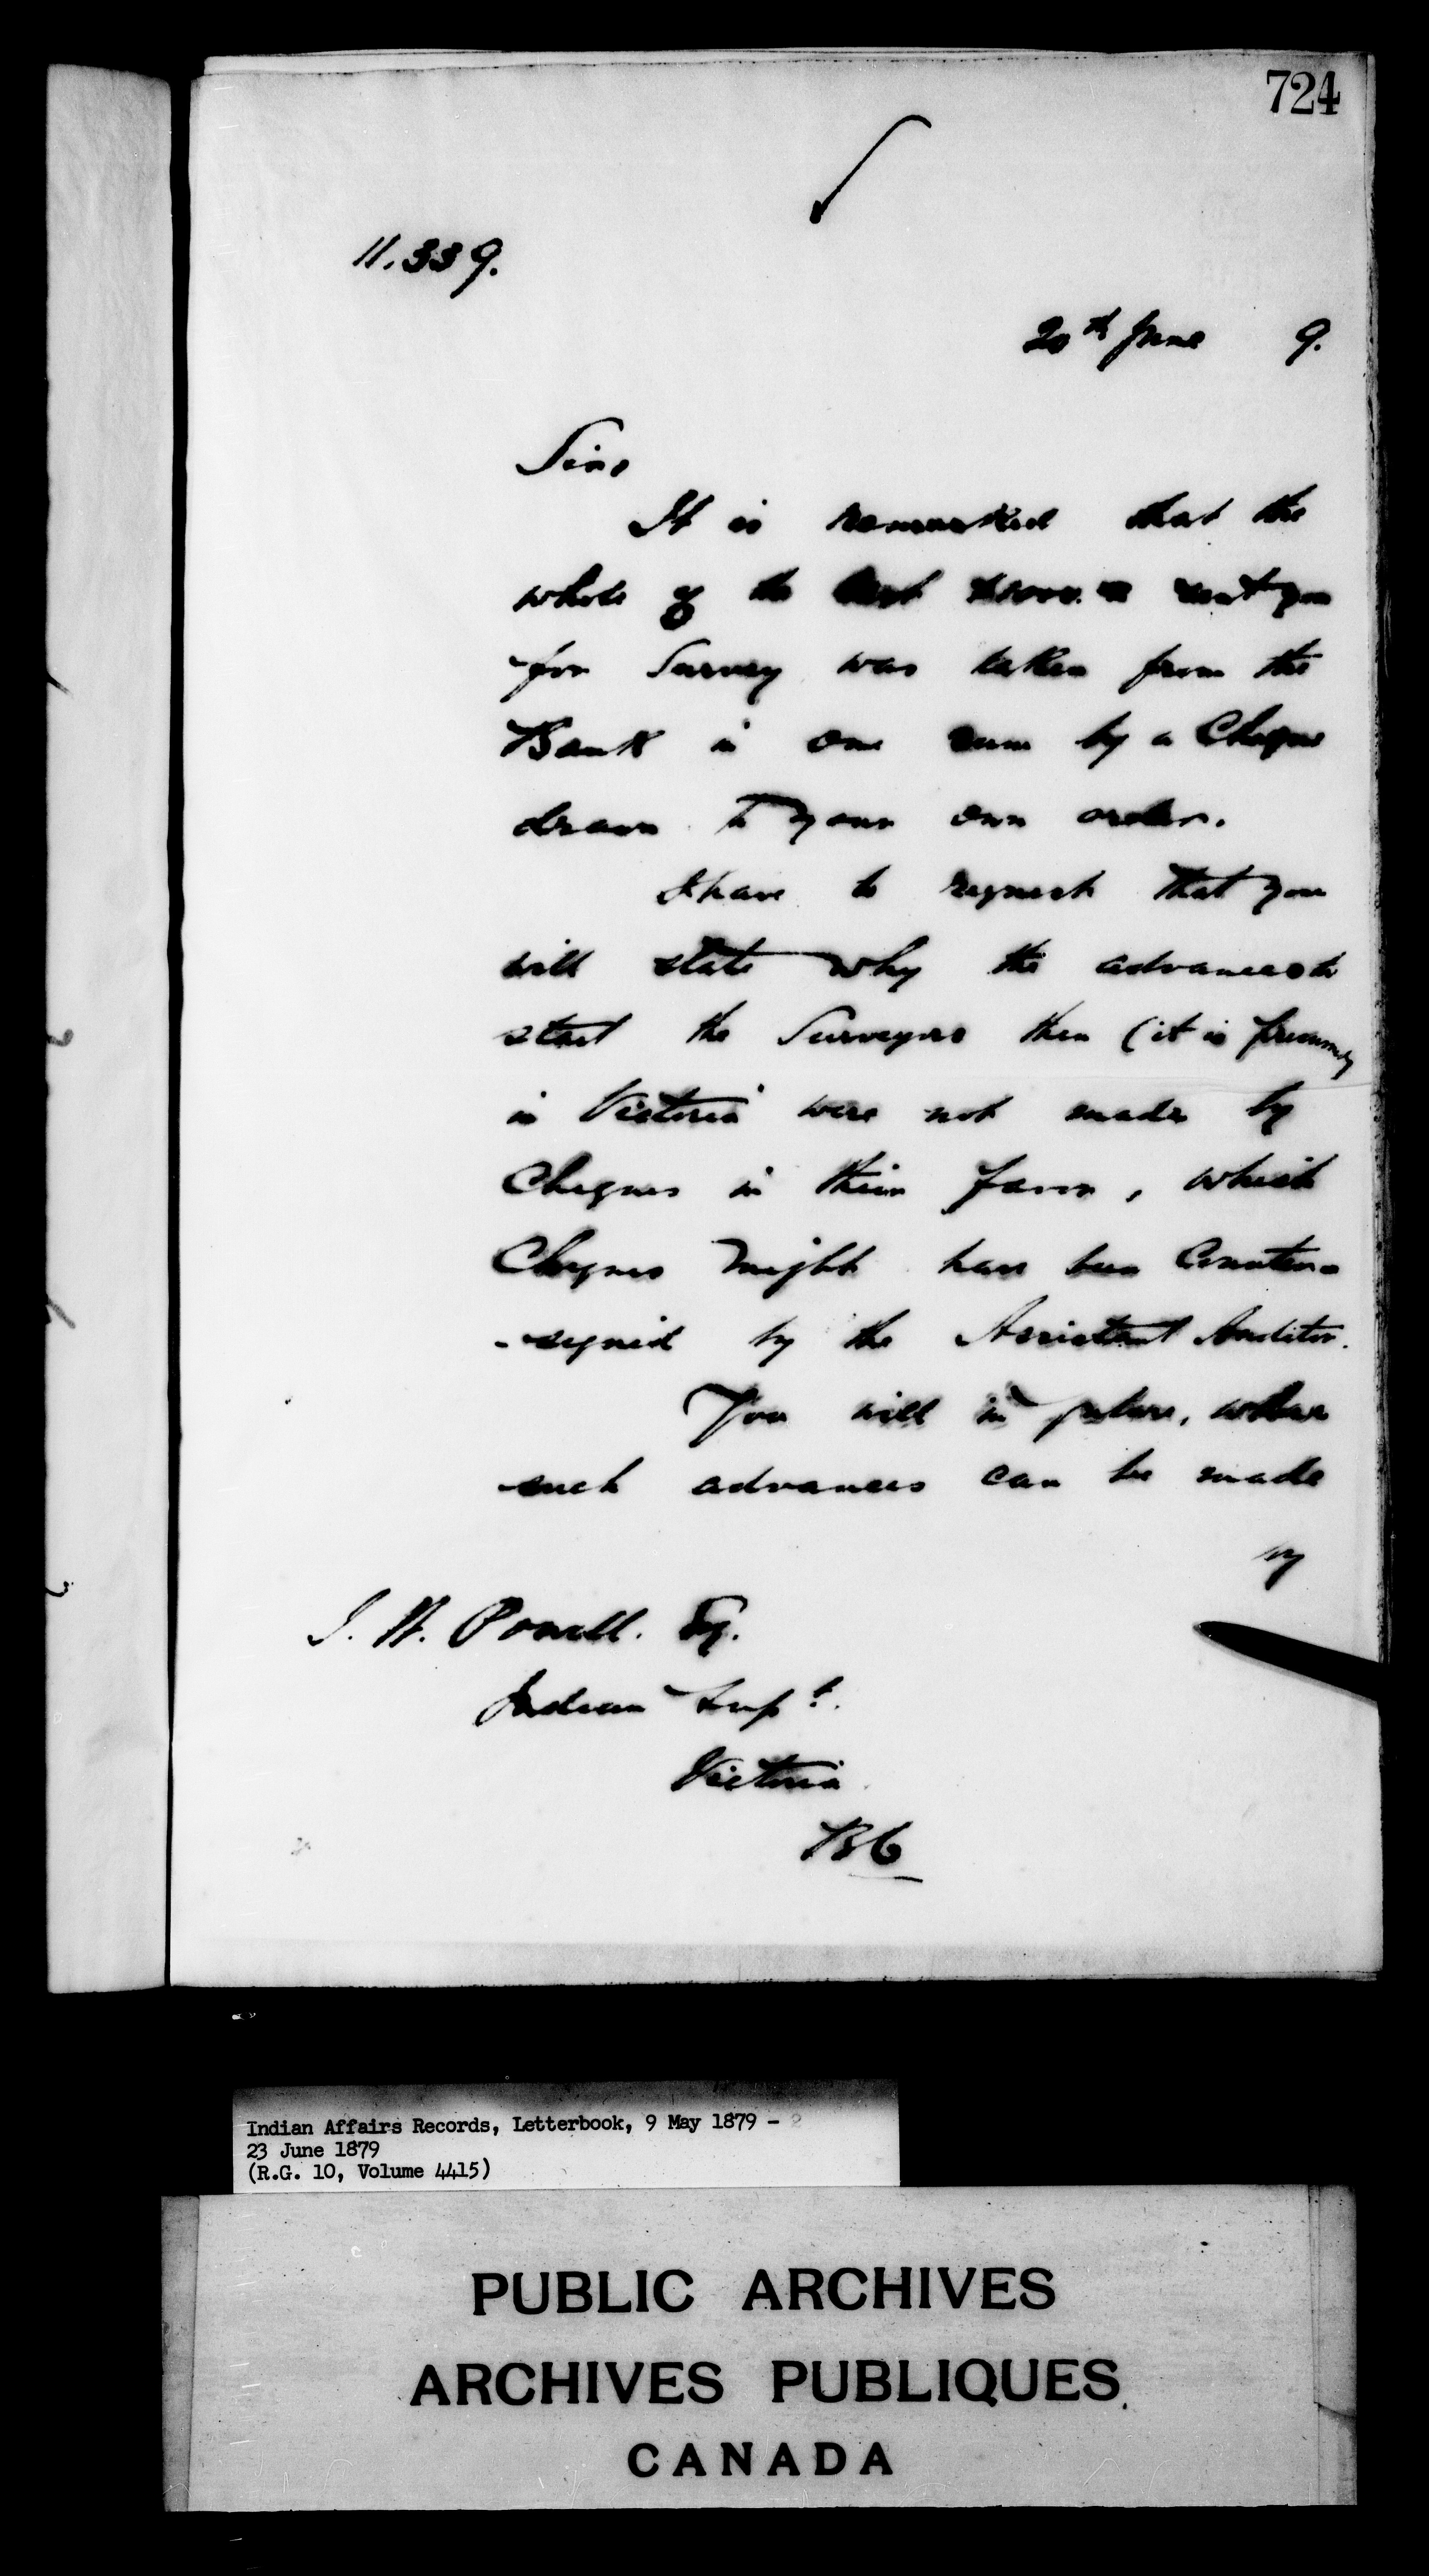 724
11.339.
20th June 9.
Sir,
It is remarked that the
whole of the last sent you
for Survey was taken from the
Bank in one sum by a Cheque
drawn to your own order.
I have to request that you
will state why the advances to
start the Surveyors then (it is presumed)
in Victoria were not made by
Cheques in their favor, which
Cheques might have been Counter-
-signed by the Assistant Auditor.
You will in future, where
such advances can be made
by
I. W. Powell. Esq.
Indian Supt.
Victoria
BC
Indian Affairs Records, Letterbook, 9 May 1879 -
23 June 1879
(R.G. 10, Volume 4415)
PUBLIC ARCHIVES
ARCHIVES PUBLIQUES
CANADA